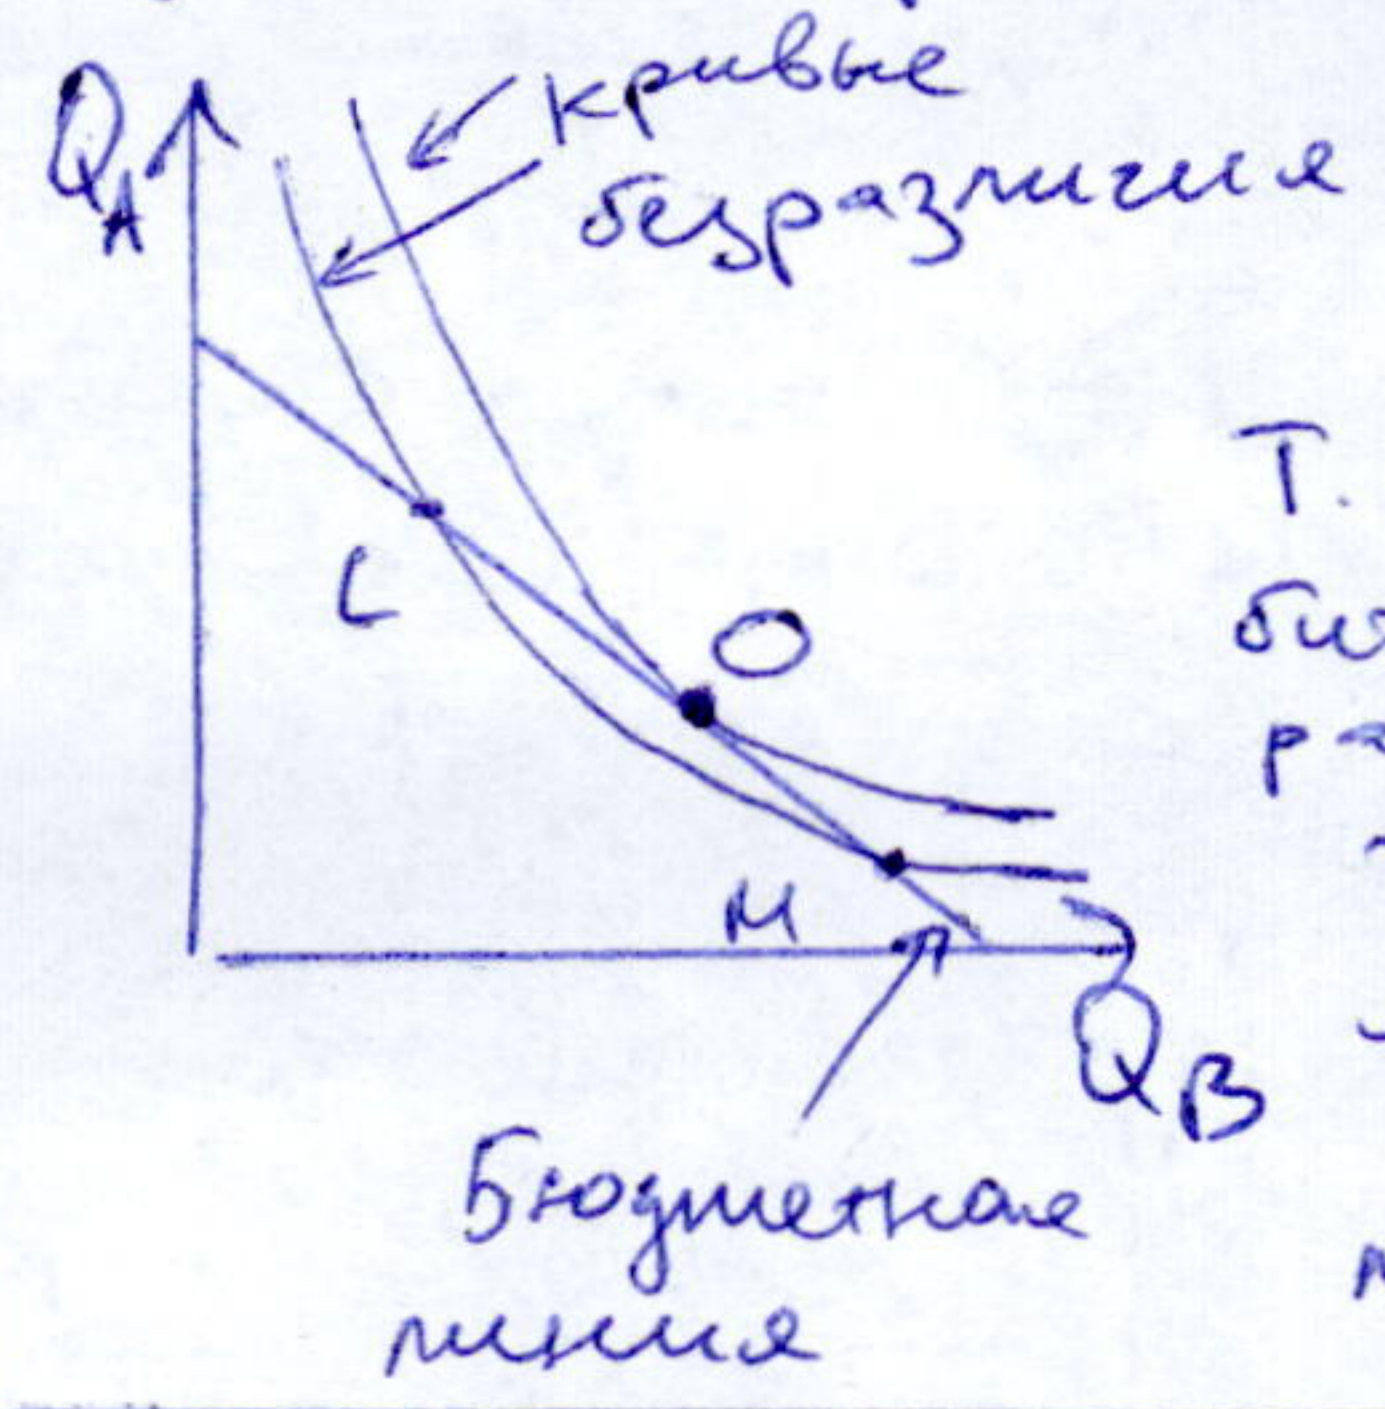 Q_A
кривые
безразличия
L
O
M
Q_B
Бюджетная
линия
Т.